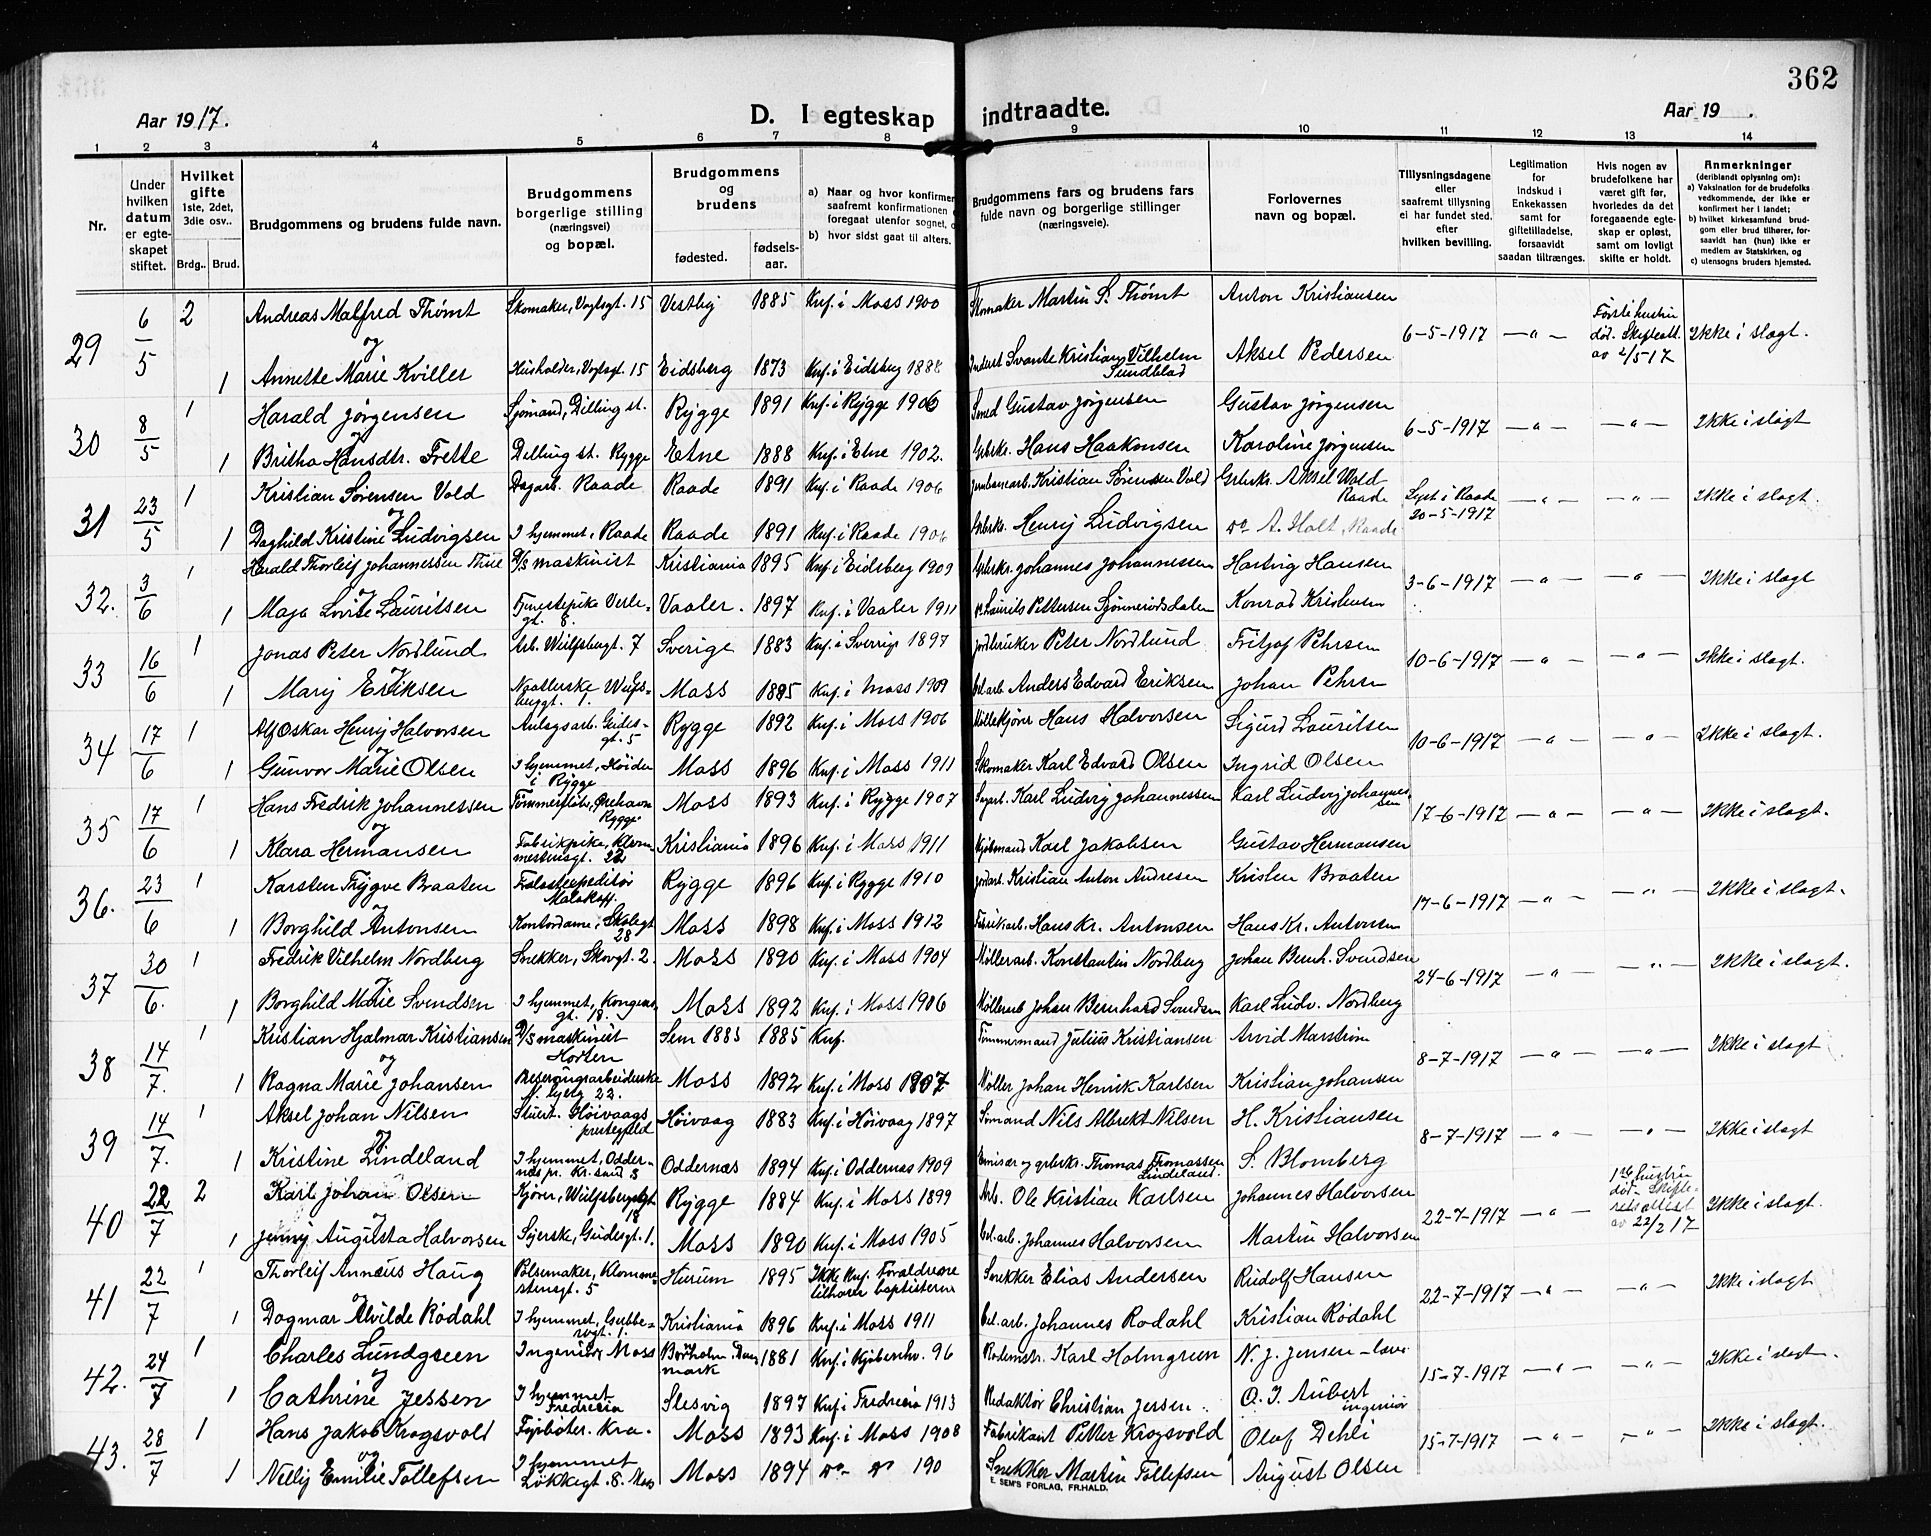 362
Aar 1917.
D. I egteskap indtraadte.
Aar 19 .
1 2 3 4 5 6 7 8 9 10 11 12 13 14
Nr.
Under hvilken datum er egteskapet stiftet.
Hvilket gifte 1ste, 2det, 3die osv..
Brdg.. Brud.
Brudgommens og brudens fulde navn.
Brudgommens borgerlige stilling (næringsvei) og bopæl.
Brudgommens og brudens
fødested. fødselsaar.
a) Naar og hvor konfirmer
saafremt konfirmationen
foregaat utenfor sognet,
b) hvor sidst gaat til alters.
Brudgommens fars og brudens fars fulde navn og borgerlige stillinger (næringsveie).
Forlovernes navn og bopæl.
Tillysningsdagene eller saafremt tillysning ei har fundet sted. efter hvilken bevilling.
Legitimation for indskud i Enkekassen samt for giftetilladelse, forsaavidt saadan tiltrænges.
Hvis nogen av brudefolkene har været gift før, hvorledes da det foregaaende egteskap er opløst, samt om lovligt skifte er holdt.
Anmerkninger (deriblandt oplysning om): a) Vaksination for de brudefolks vedkommende, der ikke er konfirmert her i landet; b) hvilket kirkesamfund brudgom eller brud tilhører, forsaavidt han (hun) ikke er medlem av Statskirken, og c) utensogns bruders hjemsted.
29 6/5 2 Andreas Malfred Thømt Skomaker, Vogtsgt. 15 Vestby 1885 Knf. i Moss 1900 Skomaker Martin S. Thømt Anton Kristiansen
og 6-5-1917 —"— Første hustru død. Skifteatt. av 2/5 17 Ikke i slegt.
1 Annette Marie Kviller Husholder, Vogtsgt. 15 Eidsberg 1873 Knf. i Eidsberg 1888 Svante Kristian Vilhelm Sundblad Aksel Pedersen
30 8/5 1 Harald Jørgensen Sjømand, Dilling st. Rygge 1891 Knf. i Rygge 1906 Smed Gustav Jørgensen Gustav Jørgensen
6-5-1917 —"— —"— Ikke i slegt
1 Britha Hansdtr. Frette Dilling st. Rygge Etne 1888 Knf. i Etne 1902. Grbrkr. Hans Haakonsen Karoline Jørgensen
31 23/5 1 Kristian Sørensen Vold Dagarb. Raade Raade 1891 Knf. i Raade 1906 Jernbanearb. Kristian Sørensen Vold Grbrkr. Aksel Wold Raade
og Lyst i Raade 20-5-1917 —"— —"— Ikke i slegt.
1 Daghild Kristine Ludvigsen I hjemmet, Raade Raade 1891 Knf. i Raade 1906 Grbrkr. Henry Ludvigsen Do A. Holt, Raade
32. 3/6 1 Harald Thorleif Johannessen Thue D/S maskinist Kristiania 1895 Knf. i Eidsberg 1909 Grbrkr. Johannes Johannessen Hartvig Hansen
og 3-6-1917 —"— —"— Ikke i slegt
1 Maja Lovise Lauritsen Tjenestepike Verlegt. 8. Vaaler. 1897 Knf. i Vaaler 1911 Laurits Pettersen Sjønnerødsdalen Konrad Kristensen
33 16/6 1 Jonas Peter Nordlund Arb. Wulfsbergt. 7 Sverige 1883 Knf. i Sverrige 1897 Jordbruker Peter Nordlund Fritjof Pehrsen
og 10-6-1917 —"— —"— Ikke i slegt.
1 Mary Eriksen Moss 1885 Knf. i Moss 1909 Anders Edvard Eriksen Johan Pehrsen
34 17/6 1 Alf Oskar Henry Halvorsen Anlagsarb. Gudesgt. 5 Rygge 1892 Knf. i Moss 1906 Møllekjører Hans Halvorsen Sigurd Lauritsen
og 10-6-1917 —"— —"— Ikke i slegt.
1 Gunvor Marie Olsen I hjemmet, Høiden i Rygge Moss 1896 Knf. i Moss 1911 Skomaker Karl Edvard Olsen Ingrid Olsen
35 17/6 1 Hans Fredrik Johannessen Tømmerfløter, Ørehavn Rygge Moss 1893 Knf. i Rygge 1907 Sagarb. Karl Ludvig Johannessen Karl Ludvig Johannessen
og 17-6-1917 —"— —"— Ikke i slegt.
1 Klara Hermansen Fabrikpike, Klommestensgt. 22 Kristiania 1896 Knf. i Moss 1911 Sjømand Karl Jakobsen Gustav Hermansen
36. 23/6 1 Karsten Trygve Braaten Rygge 1896 Knf. i Rygge 1910 Jordarb. Kristian Anton Andresen Kristen Braaten
og 17-6-1917 —"— —"— Ikke i slegt.
1 Borghild Antonsen Kontordame, Skolegt 28 Moss 1898 Knf. i Moss 1912 Fabrikarb. Hans Kr. Antonsen Hans Kr. Antonsen
37 30/6. 1 Fredrik Vilhelm Nordberg Snekker, Skovgt. 2. Moss 1890 Knf. i Moss 1904 Møllerarb. Konstantin Nordberg Johan Bernh. Svendsen
og 24-6-1917 —"— —"— Ikke i slegt.
1 Borghild Marie Svendsen I hjemmet, Kongensgt. 18. Moss 1892 Knf. i Moss 1906 Møllerarb Johan Bernhard Svendsen Karl Ludv. Nordberg
38 14/7. 1 Kristian Hjalmar Kristiansen D/S maskinist Horten Sem 1885 1885 Knf. Tømmermand Julius Kristiansen Arvid Marstrøm
og 8-7-1917 —"— —"— Ikke i slegt
1 Ragna Marie Johansen Moss 1892 Knf. i Moss 1907 Møller Johan Henrik Karlsen Kristian Johansen
39 14/7. 1 Aksel Johan Nilsen Stuert. Høivaags prestegjeld Høivaag 1883 Knf. i Høivaag 1897 Sømand Nils Albrekt Nilsen H. Kristiansen
og 8-7-1917 —"— —"— Ikke i slegt
1 Kristine Lindeland I hjemmet, Oddernes p. Kr.sand S Oddernæs 1894 Knf. i Oddernæs 1909 Emisær og grbrkr. Thomas Thomassen Lindeland. S. Blomberg
40 22/7 2 Karl Johan Olsen Kjører, Wulfsbergsgt 18 Rygge 1884 Knf. i Moss 1899 Arb. Ole Kristian Karlsen Johannes Halvorsen
og 22-7-1917 —"— 1ste hustru død — Skifteretsattest av 22/2 17 Ikke i slegt.
1 Jenny Augusta Halvorsen Syerske, Gudesgt. 1. Moss 1890 Knf. i Moss 1905 Johannes Halvorsen Martin Halvorsen
41 22/7 1 Thorleif Annæus Haug Pølsemaker, Klommestensgt. 5 Hurum 1895 Ikke knf. Forældrene tilhører baptisterne Snekker Elias Andersen Rudolf Hansen
og 22-7-1917 —"— —"— Ikke i slegt
1 Dagmar Alvilde Rødahl I hjemmet, Gubberogt. 1. Kristiania 1896 Knf. i Moss 1911 Johannes Rødahl Kristian Rødahl
42. 24/7 1 Charles Lundgreen Ingeniør, Moss Bornholm. Danmark 1881 Knf. i Kjøbenhv. 96 Rodemstr. Karl Holmgreen N. J. Jensen
og 15-7-1917 —"— —"— Ikke i slegt.
1 Cathrine Jessen I hjemmet Fredrecia Slesvig 1897 Knf. i Fredrecia 1913 Redaktør Christian Jessen O. J. Aubert ingeniør
43. 28/7 1 Hans Jakob Krogsvold Fyrbøter. Kra. Moss 1893 Knf. i Moss 1908 Fabrikant Petter Krogsvold Olaf Dehli
og 15-7-1917 —"— —"— Ikke i slegt.
1 Nelly Emilie Tollefsen I hjemmet Løkkegt. 8. Moss Moss 1894 Do— Do 190 Snekker Martin Tollefsen August Olsen
E. SEM'S FORLAG, FR.HALD.